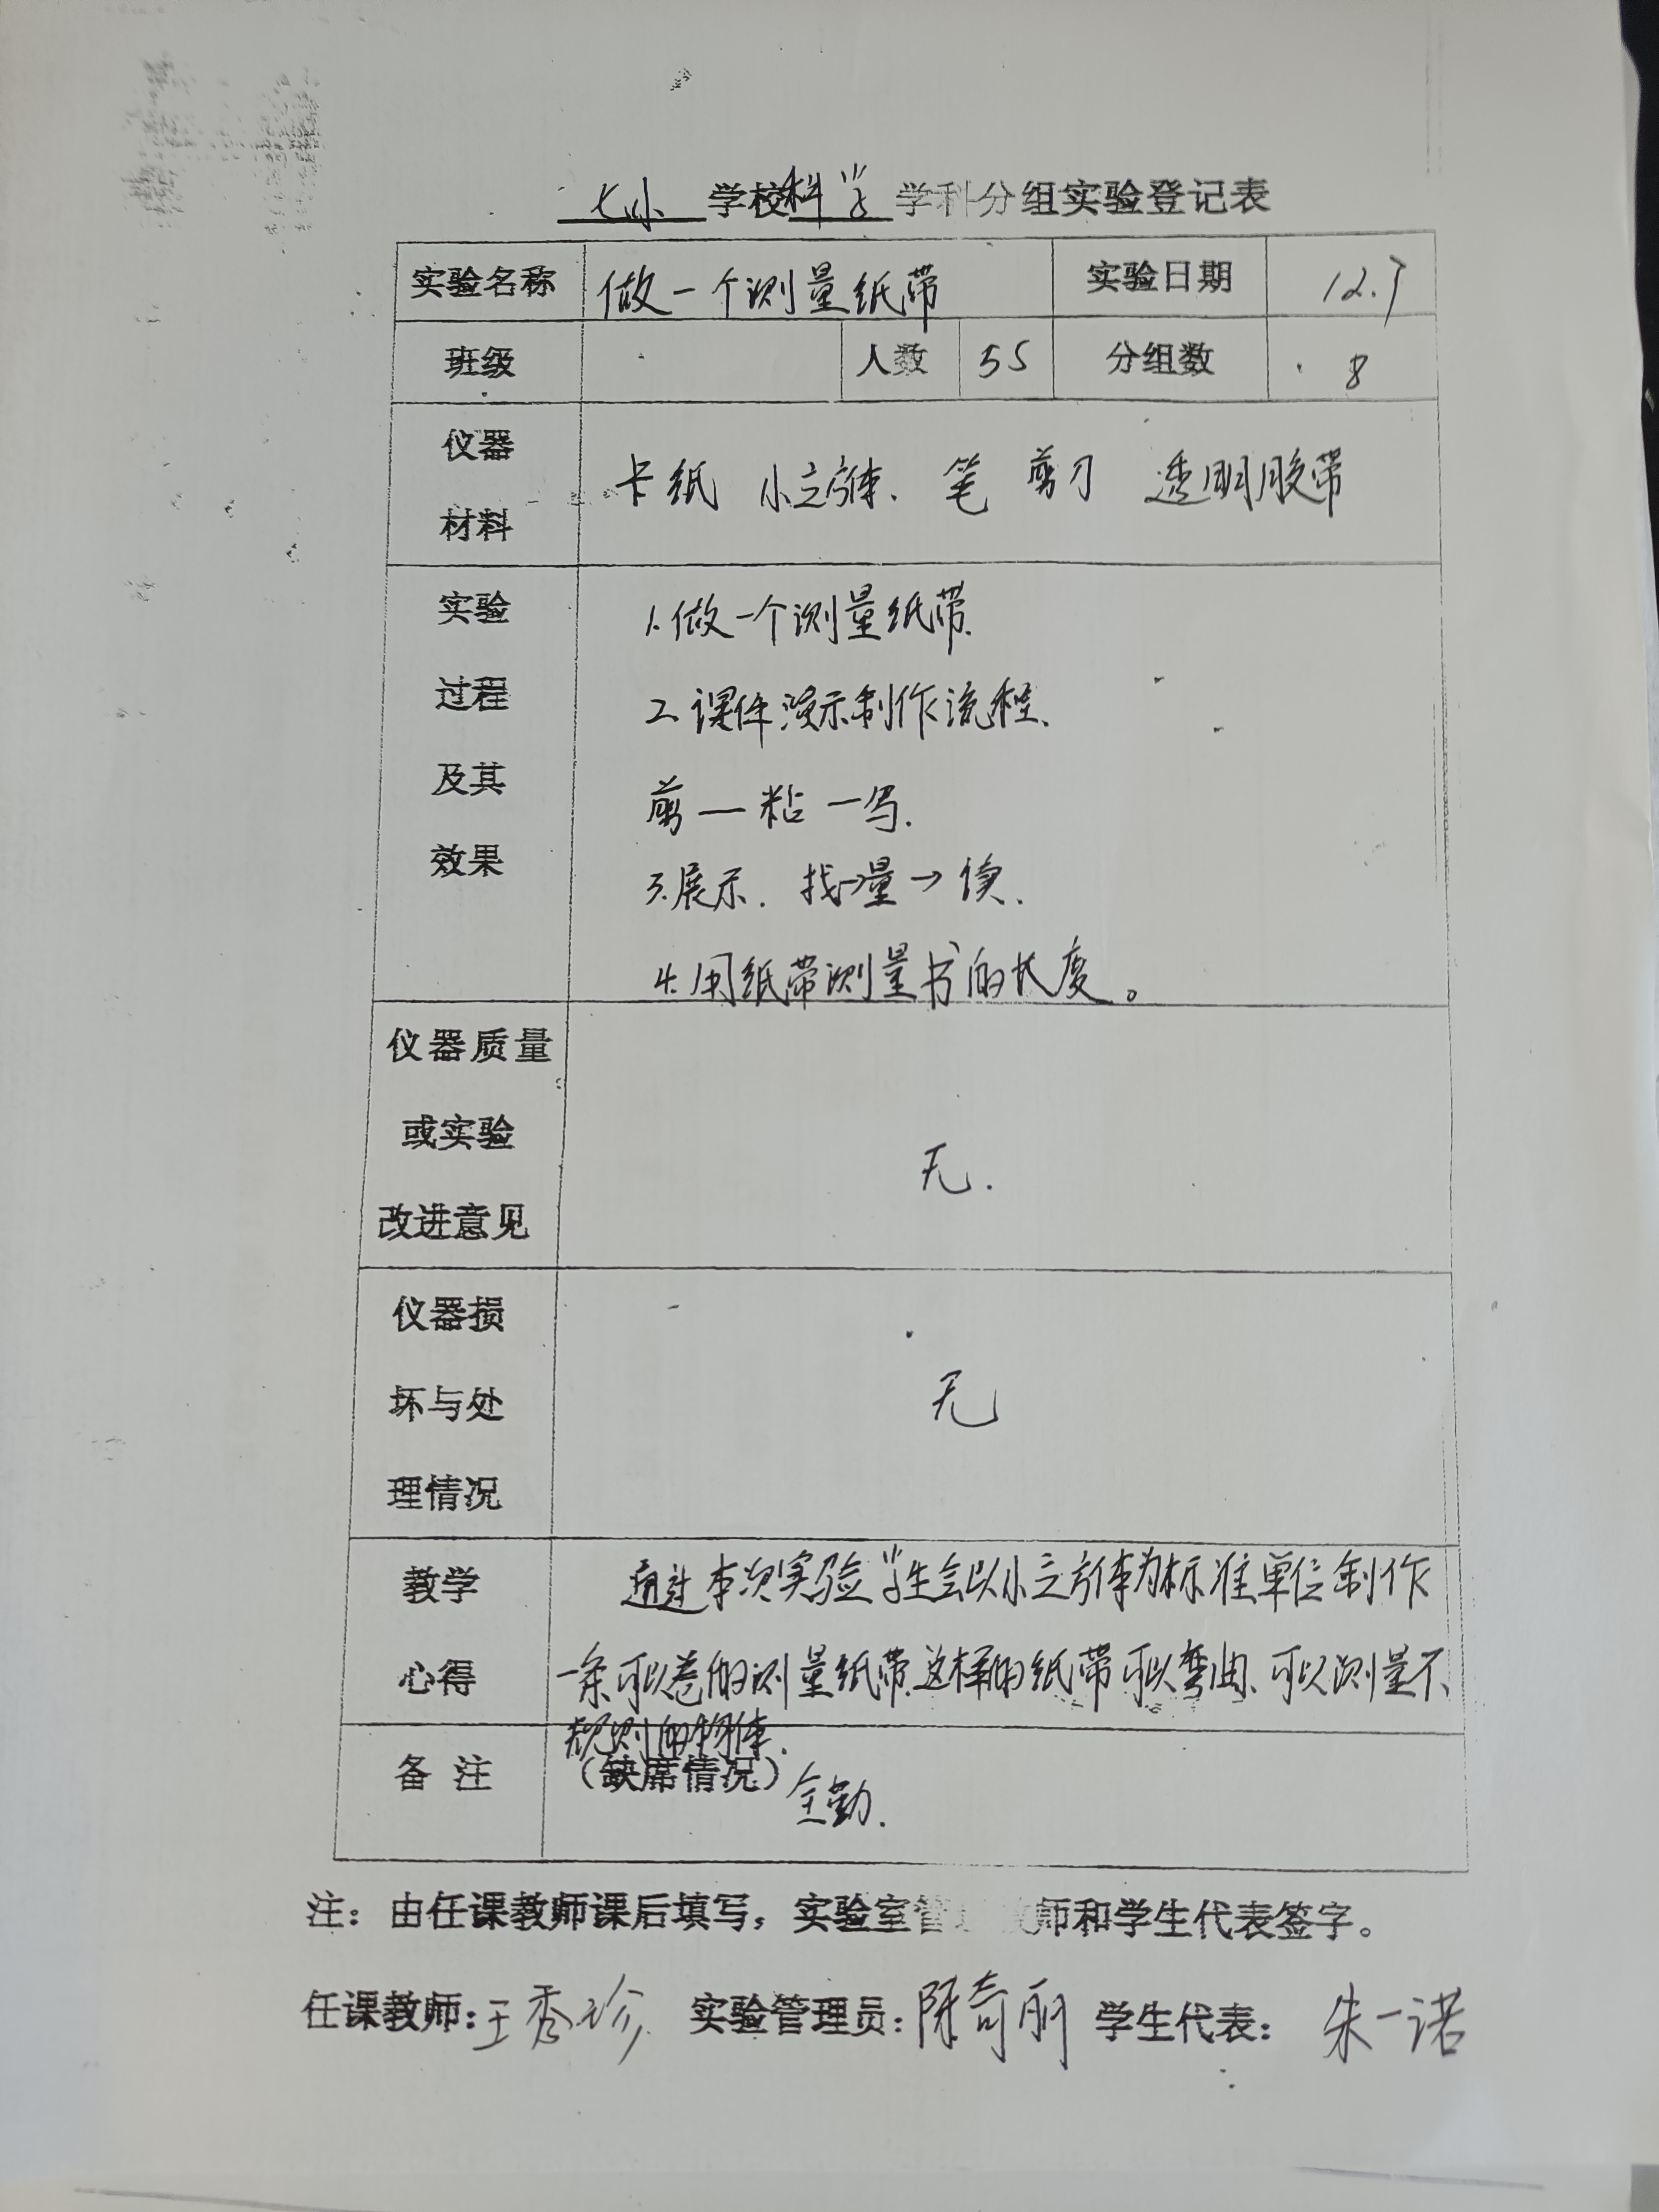 七小 学校 科学 学科分组实验登记表
实验名称 做一个测量纸带 实验日期 12.7
班级 人数 55 分组数 8
仪器
材料
卡纸 小立方体、笔 剪刀 透明胶带
实验
过程
及其
效果
1.做一个测量纸带.
2.课件演示制作流程、
剪—粘—写.
3.展示. 找→量→读.
4.用纸带测量书的长度。
仪器质量
或实验
改进意见
无.
仪器损
坏与处
理情况
无
教学
心得
通过本次实验学生会以小立方体为标准单位制作
一条可以卷的测量纸带.这样的纸带可以弯曲、可以测量不
规则的物体.
备 注 (缺席情况) 全勤.
注：由任课教师课后填写，实验室管理教师和学生代表签字。
任课教师：王秀珍 实验管理员：陈奇丽 学生代表：朱一诺